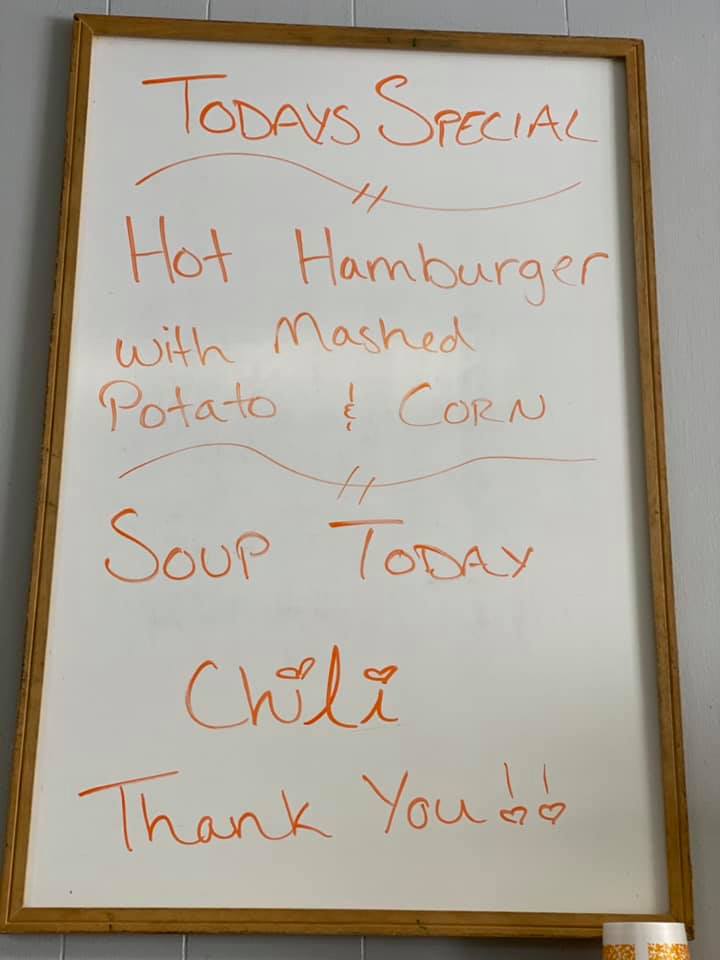 TODAYS SPECIAL
Hot Hamburger
with Mashed
Potato & CORN
SOUP TODAY
Chili
Thank You!!